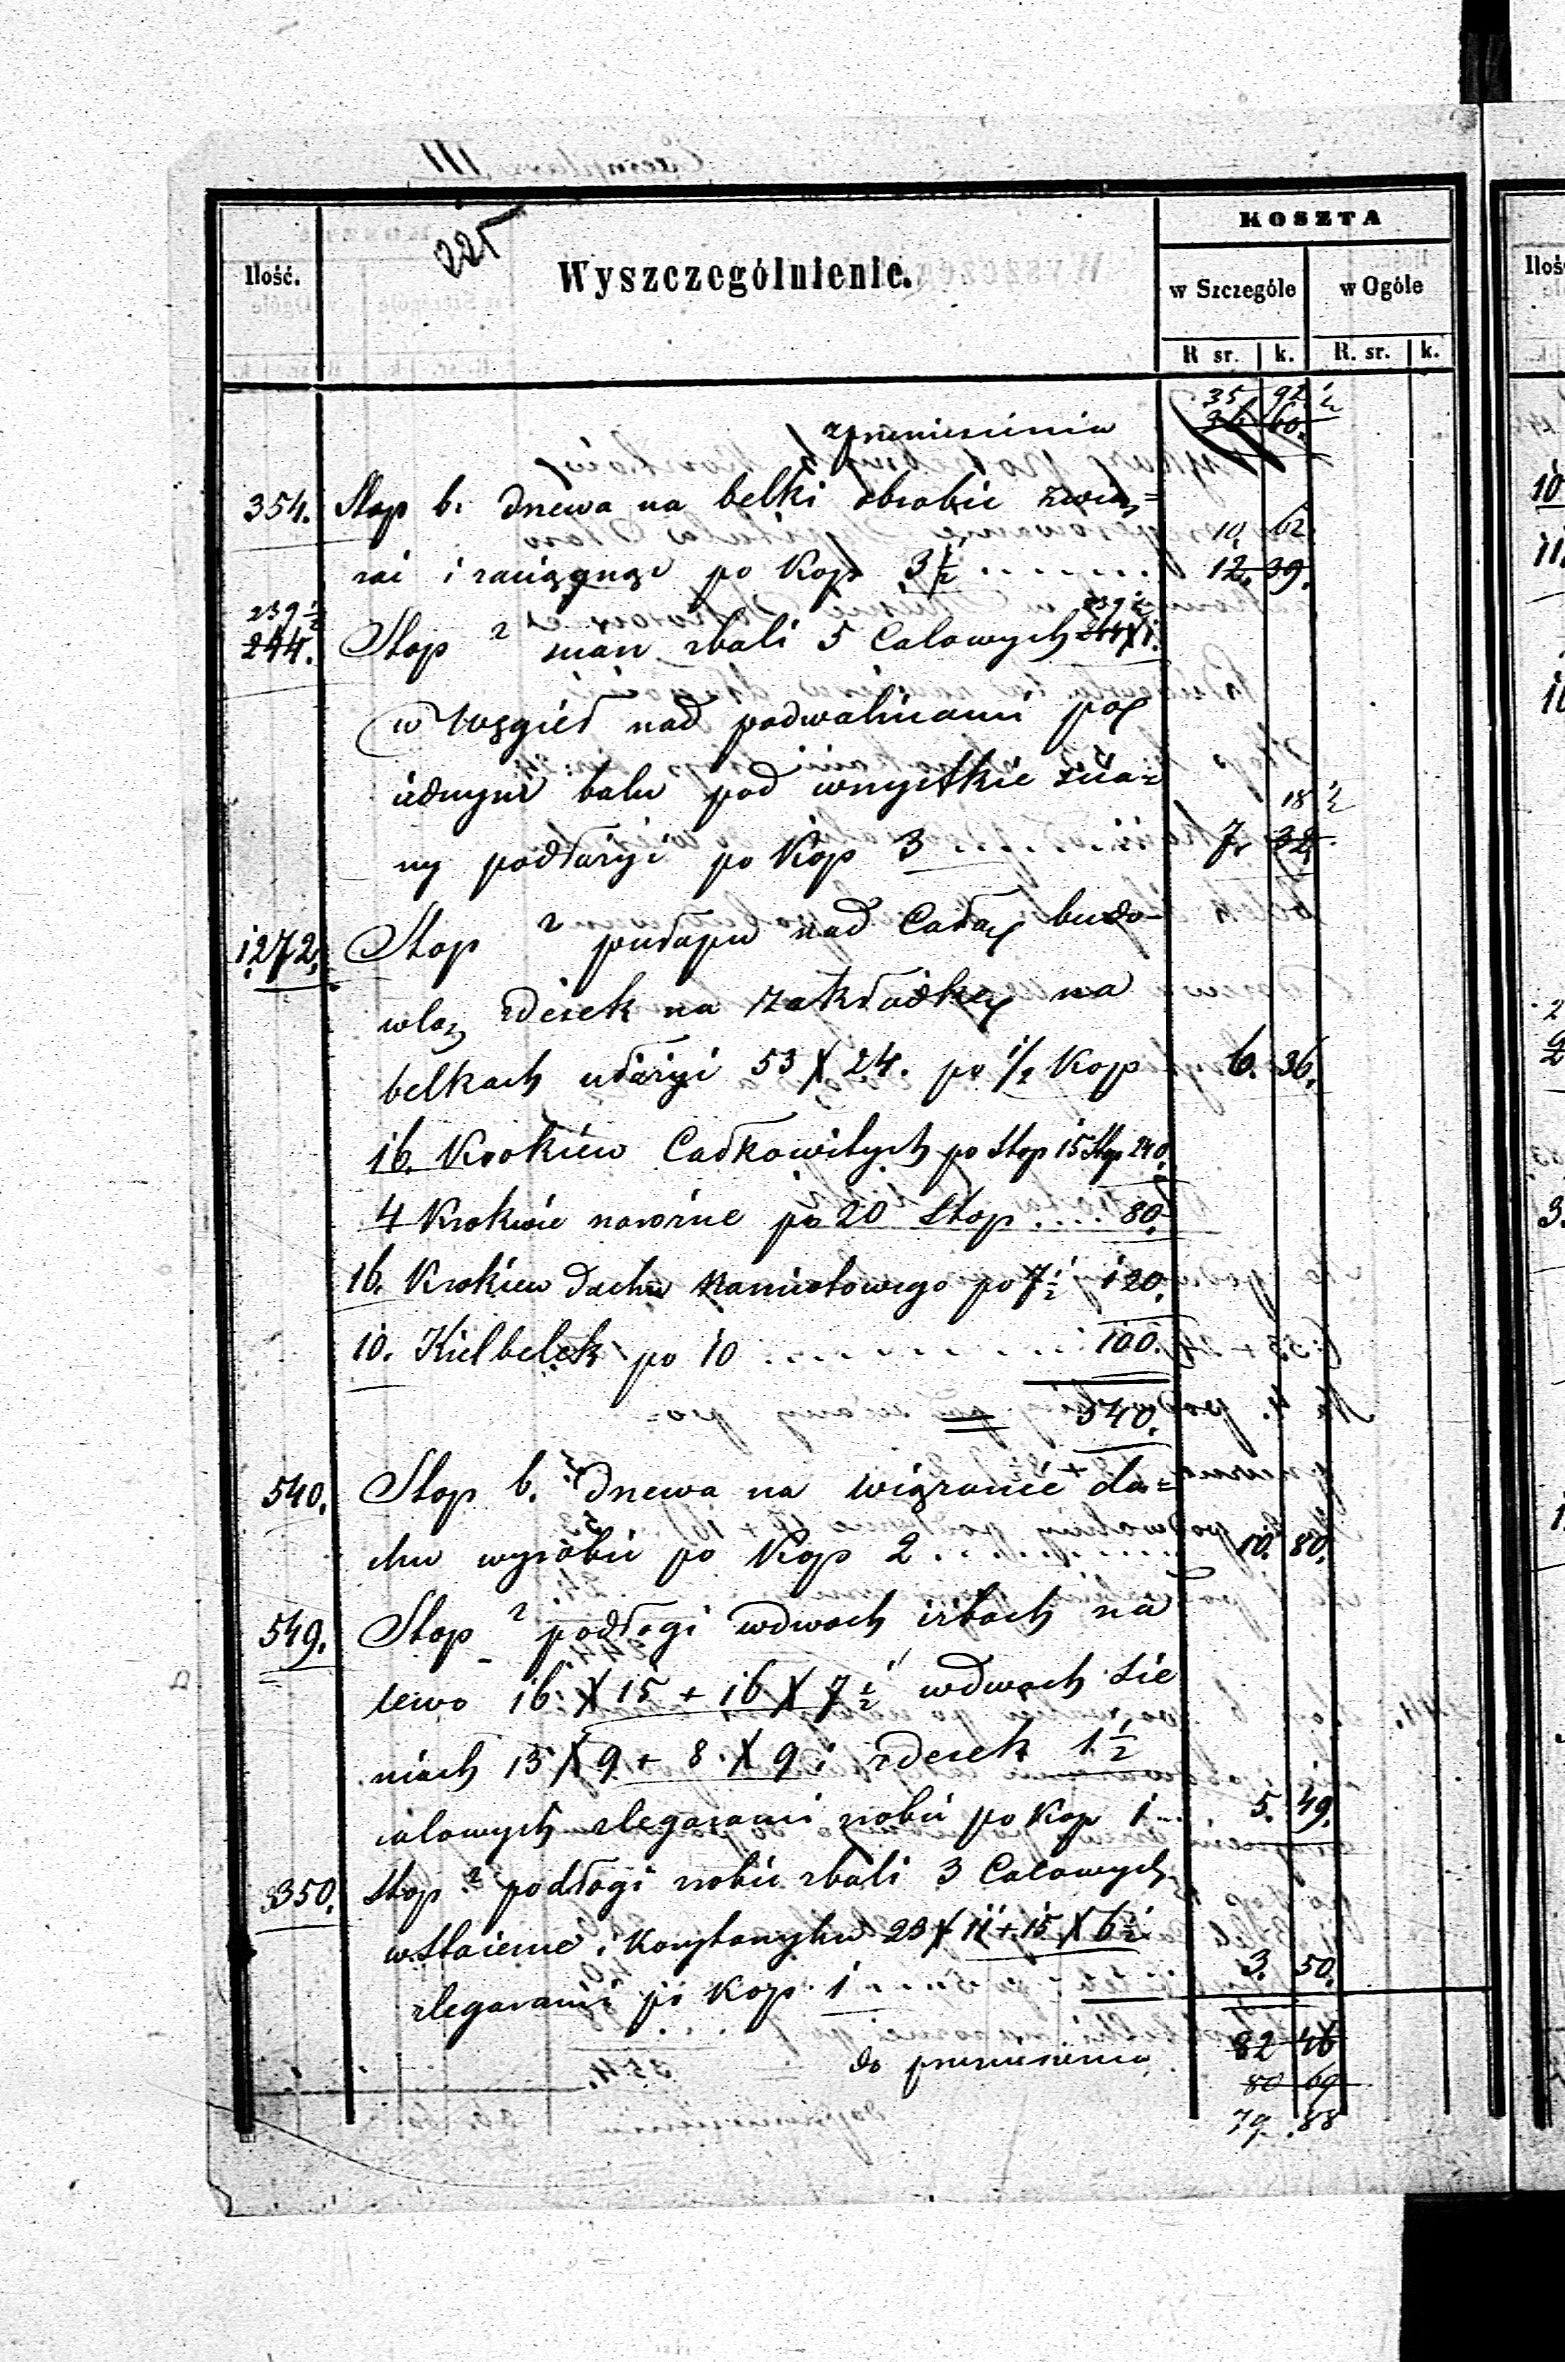 225
KOSZTA
Ilość. Wyszczególnienie. w Szczególe w Ogóle
R sr. k. R. sr. k.
35 92 ½
zprzeniesienia 36 60.
354. Stop b. drzewa na belki obrobić zwią=
10. 62
zać i zaciągnąć po Kop 3½ . . . . . . . 12. 39.
239½ 239½
244. Stop ² ścian zbali 5 Calowych 244 X 1.
w węgieł nad podwalinami po
iednym balu pod wszystkie ścia=
18 ½
ny podłużyć po Kop 3 7. 32.
1272. Stop ² pułapu nad Całą budo-
wlą zdesek na zakładkę na
belkach ułożyć 53 X 24. po ½ Kop 6. 36.
16. Krokiew Całkowitych po stop 15 Stop 240.
4 Krokwie narożne po 20 Stop . . . . 80.
16. Krokiew dachu namiotowego po 7½ 120.
10. Kielbelek po 10 . . . . . . . . . . 100.
540.
540. Stop b. drzewa na wiązanie da=
chu wyrobić po Kop 2 . . . . . . . 10. 80.
549. Stop ² podłogi wdwóch izbach na
lewo 16 X 15 + 16 X 7½ wdwóch sie
niach 15 X 9 + 8. X 9 i zdesek 1½
calowych zlegarami zrobić po Kop 1 ... 5. 49.
350. Stop ² podłogi zrobić zbali 3 Calowych
wStaience i Korytarzyku 23 X 11 + 15 X 6½
zlegarami po Kop 1 3. 50.
do przeniesienia 82 46
80 69
79 . 88